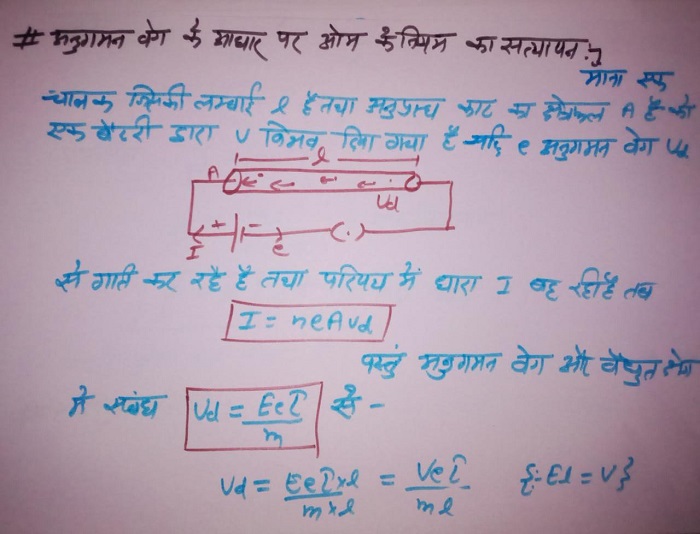 # अनुगमन वेग के आधार पर ओम के नियम का सत्यापन :-
माना एक
चालक जिसकी लम्बाई l है तथा अनुप्रस्थ काट का क्षेत्रफल A है को
एक बैटरी द्वारा V विभव दिया गया है यदि e अनुगमन वेग Vd
l
A
Vd
+ -
I e (.)
से गति कर रहे है तथा परिपथ में धारा I बह रही है तब
I = neAVd
परन्तु अनुगमन वेग और वैद्युत क्षेत्र
मे संबंध Vd = Eeτ/m से -
Vd = Eeτ×l/m×l = Veτ/ml {∵ El = V}